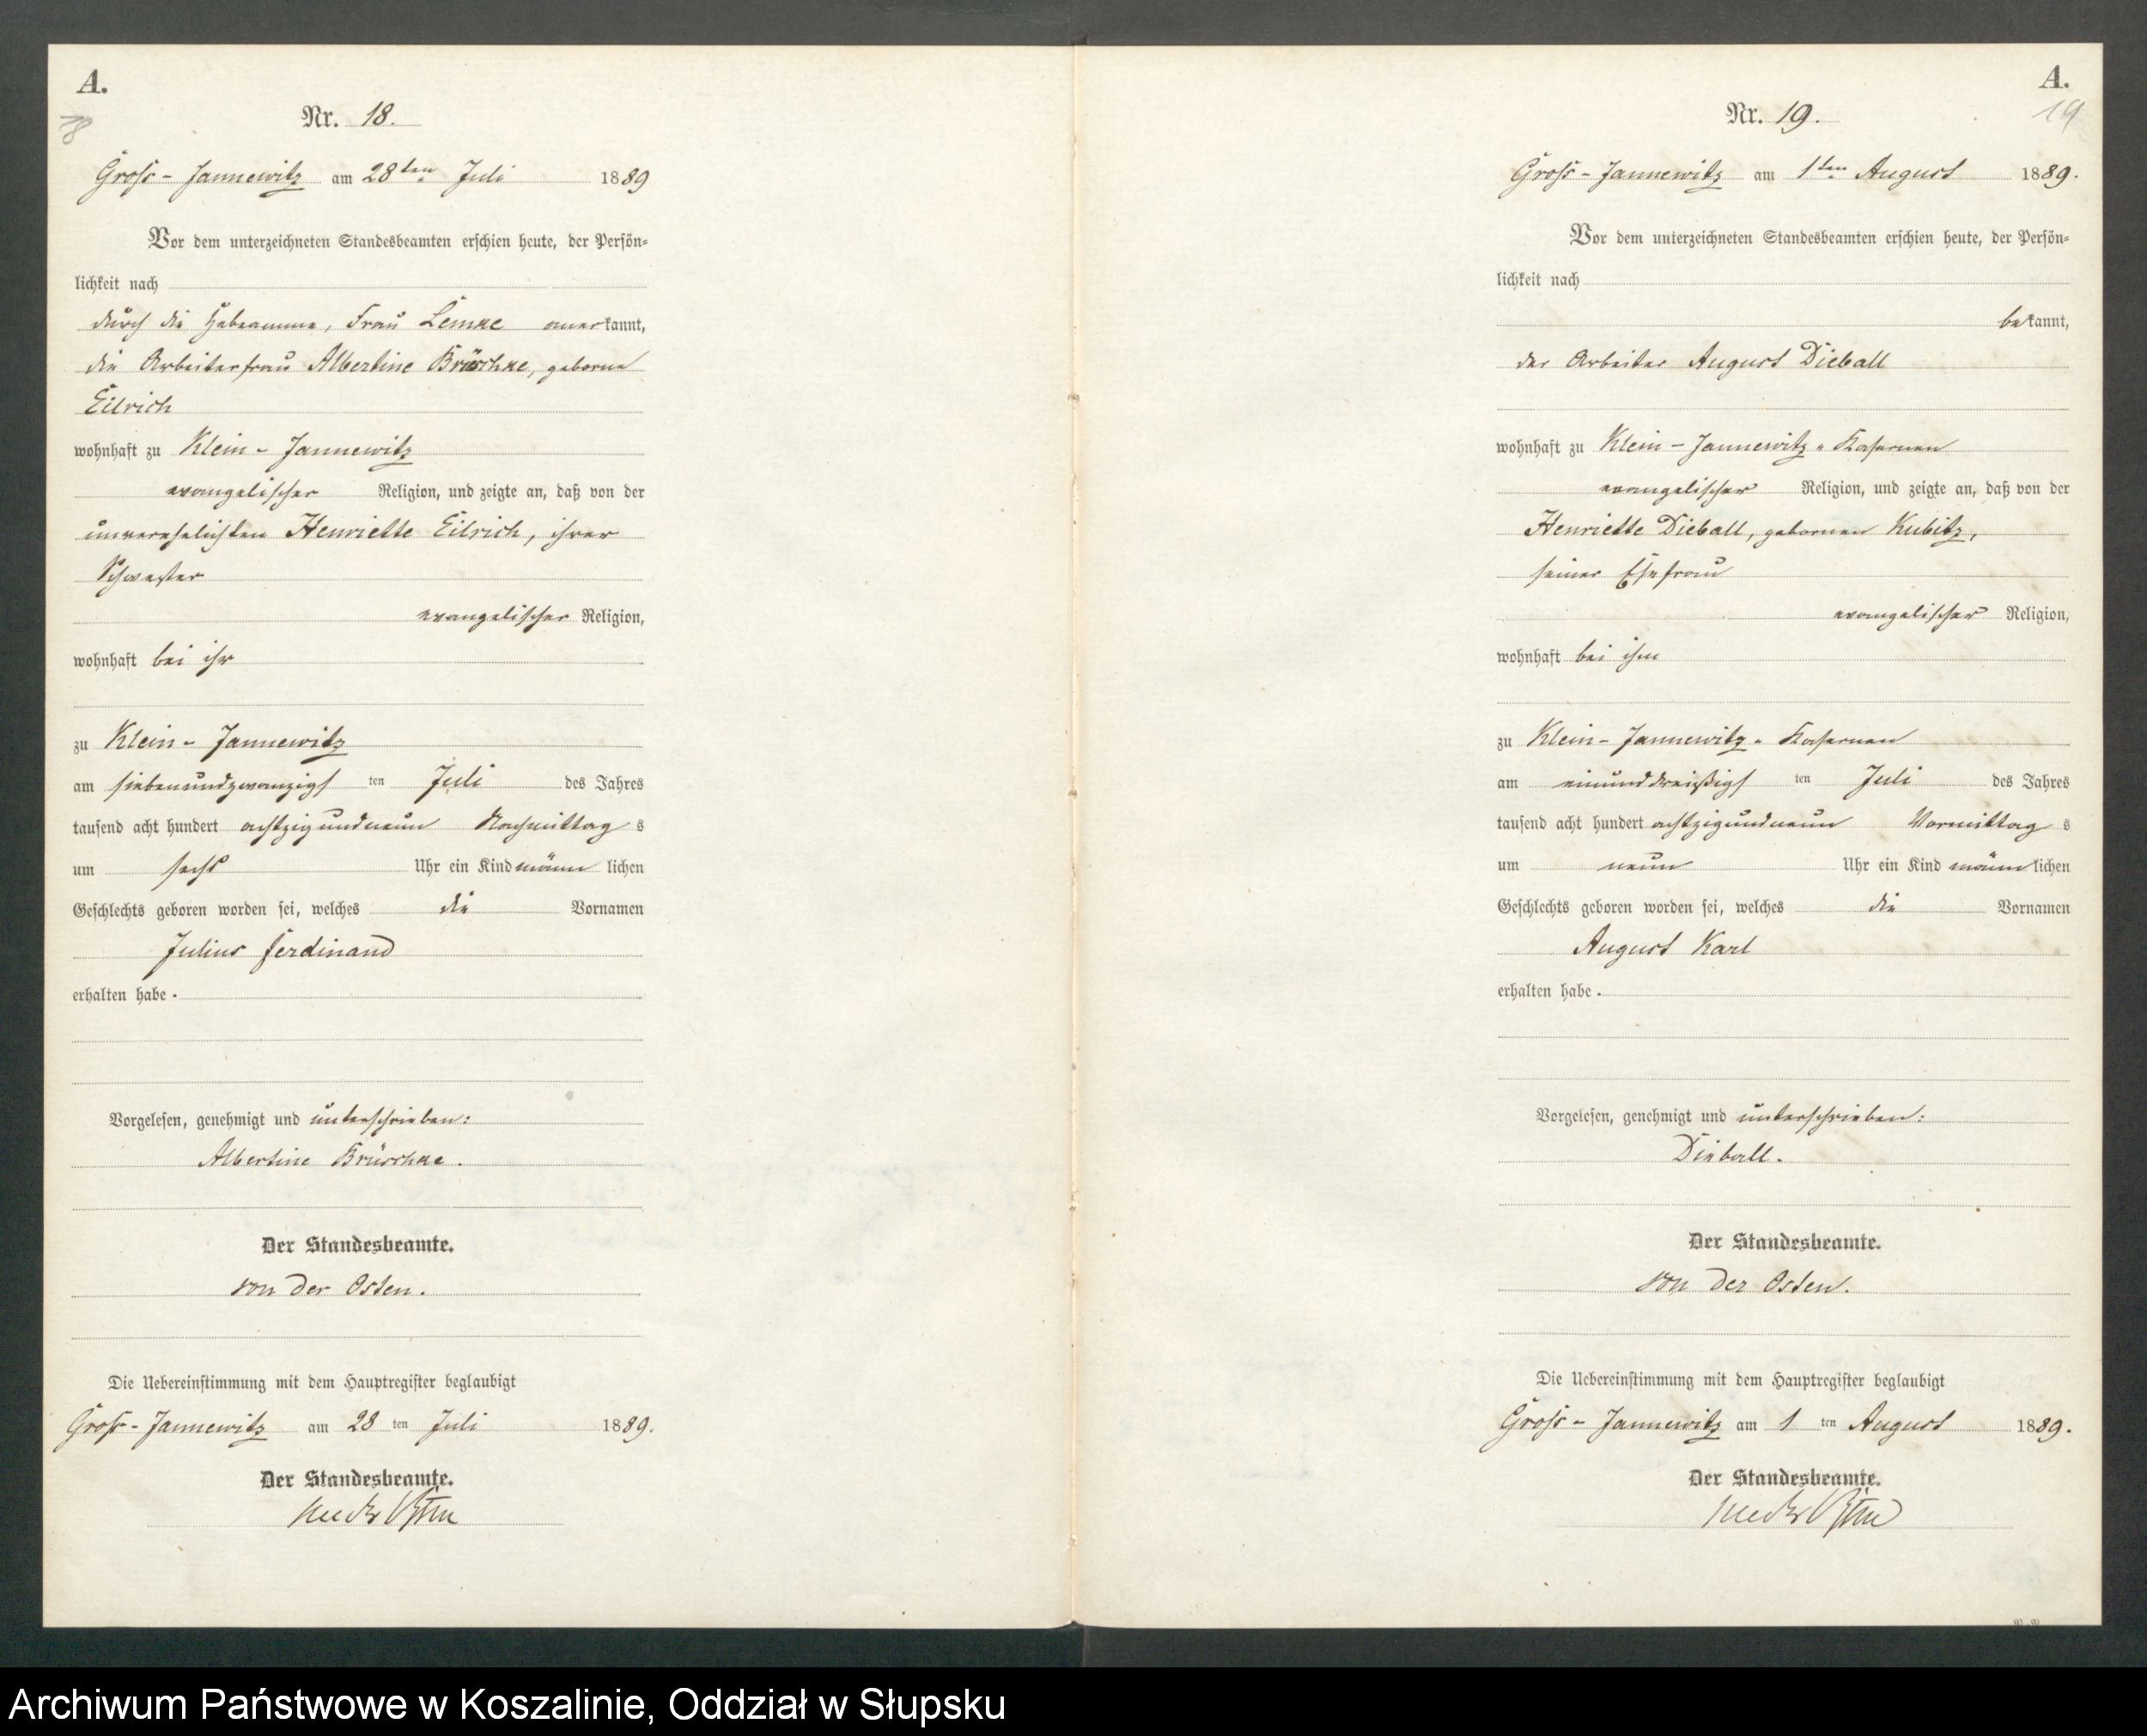 A.
18
Nr. 18.
Gross-Jannewitz am 28ten Juli 1889
Vor dem unterzeichneten Standesbeamten erschien heute, der Persön-
lichkeit nach
durch die Hebeamme, Frau Lemke anerkannt,
die Arbeiterfrau Albertine Brüschke, geborne
Eilrich
wohnhaft zu Klein-Jannewitz
evangelischer Religion, und zeigte an, daß von der
unverehelichten Henriette Eilrich, ihrer
Schwester
evangelischer Religion,
wohnhaft bei ihr
zu Klein-Jannewitz
am siebenundzwanzigsten Juli des Jahres
tausend acht hundert achtzigundneun Nachmittags
um sechs Uhr ein Kind männlichen
Geschlechts geboren worden sei, welches die Vornamen
Julius Ferdinand
erhalten habe.
Vorgelesen, genehmigt und unterschrieben:
Albertine Brüschke.
Der Standesbeamte.
von der Osten.
Die Uebereinstimmung mit dem Hauptregister beglaubigt
Gross-Jannewitz am 28ten Juli 1889.
Der Standesbeamte.
von der Osten
A.
19
Nr. 19.
Gross-Jannewitz am 1ten August 1889.
Vor dem unterzeichneten Standesbeamten erschien heute, der Persön-
lichkeit nach
bekannt,
der Arbeiter August Dieball
wohnhaft zu Klein-Jannewitz-Kasernen
evangelischer Religion, und zeigte an, daß von der
Henriette Dieball, gebornen Kubitz,
seiner Ehefrau
evangelischer Religion,
wohnhaft bei ihm
zu Klein-Jannewitz-Kasernen
am einunddreißigsten Juli des Jahres
tausend acht hundert achtzigundneun Vormittags
um neun Uhr ein Kind männlichen
Geschlechts geboren worden sei, welches die Vornamen
August Karl
erhalten habe.
Vorgelesen, genehmigt und unterschrieben:
Dieball.
Der Standesbeamte.
von der Osten.
Die Uebereinstimmung mit dem Hauptregister beglaubigt
Gross-Jannewitz am 1ten August 1889.
Der Standesbeamte.
von der Osten
Archiwum Państwowe w Koszalinie, Oddział w Słupsku